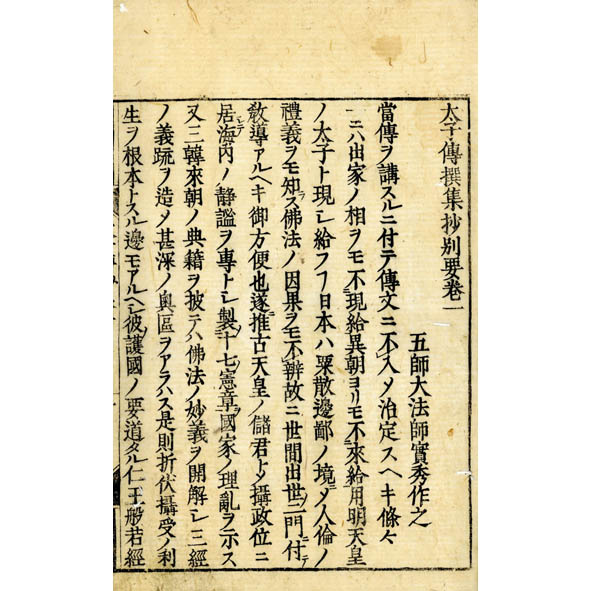 太子傳撰集抄別要卷一
五師大法師實秀作之
當傳ヲ講スルニ付テ傳文ニ不入メ治定スヘキ條々
ニハ出家ノ相ヲモ不現給異朝ヨリモ不來給用明天皇
ノ太子ト現シ給フフ日本ハ粟散邊鄙ノ境メ人倫ノ
禮義ヲモ知ス佛法ノ因果ヲモ不辨故ニ世間出世二門付テ
敎導アルヘキ御方便也遂推古天皇ノ儲君トメ攝政位ニ
居海內ノ靜謐ヲ專トシ製十七憲章國家ノ理亂ヲ示ス
又三韓來朝ノ典籍ヲ披テハ佛法ノ妙義ヲ開解シ三經
ノ義疏ヲ造メ甚深ノ奧區ヲアラハス是則折伏攝受ノ利
生ヲ根本トスル邊モアルヘシ彼護國ノ要道タル仁王般若經